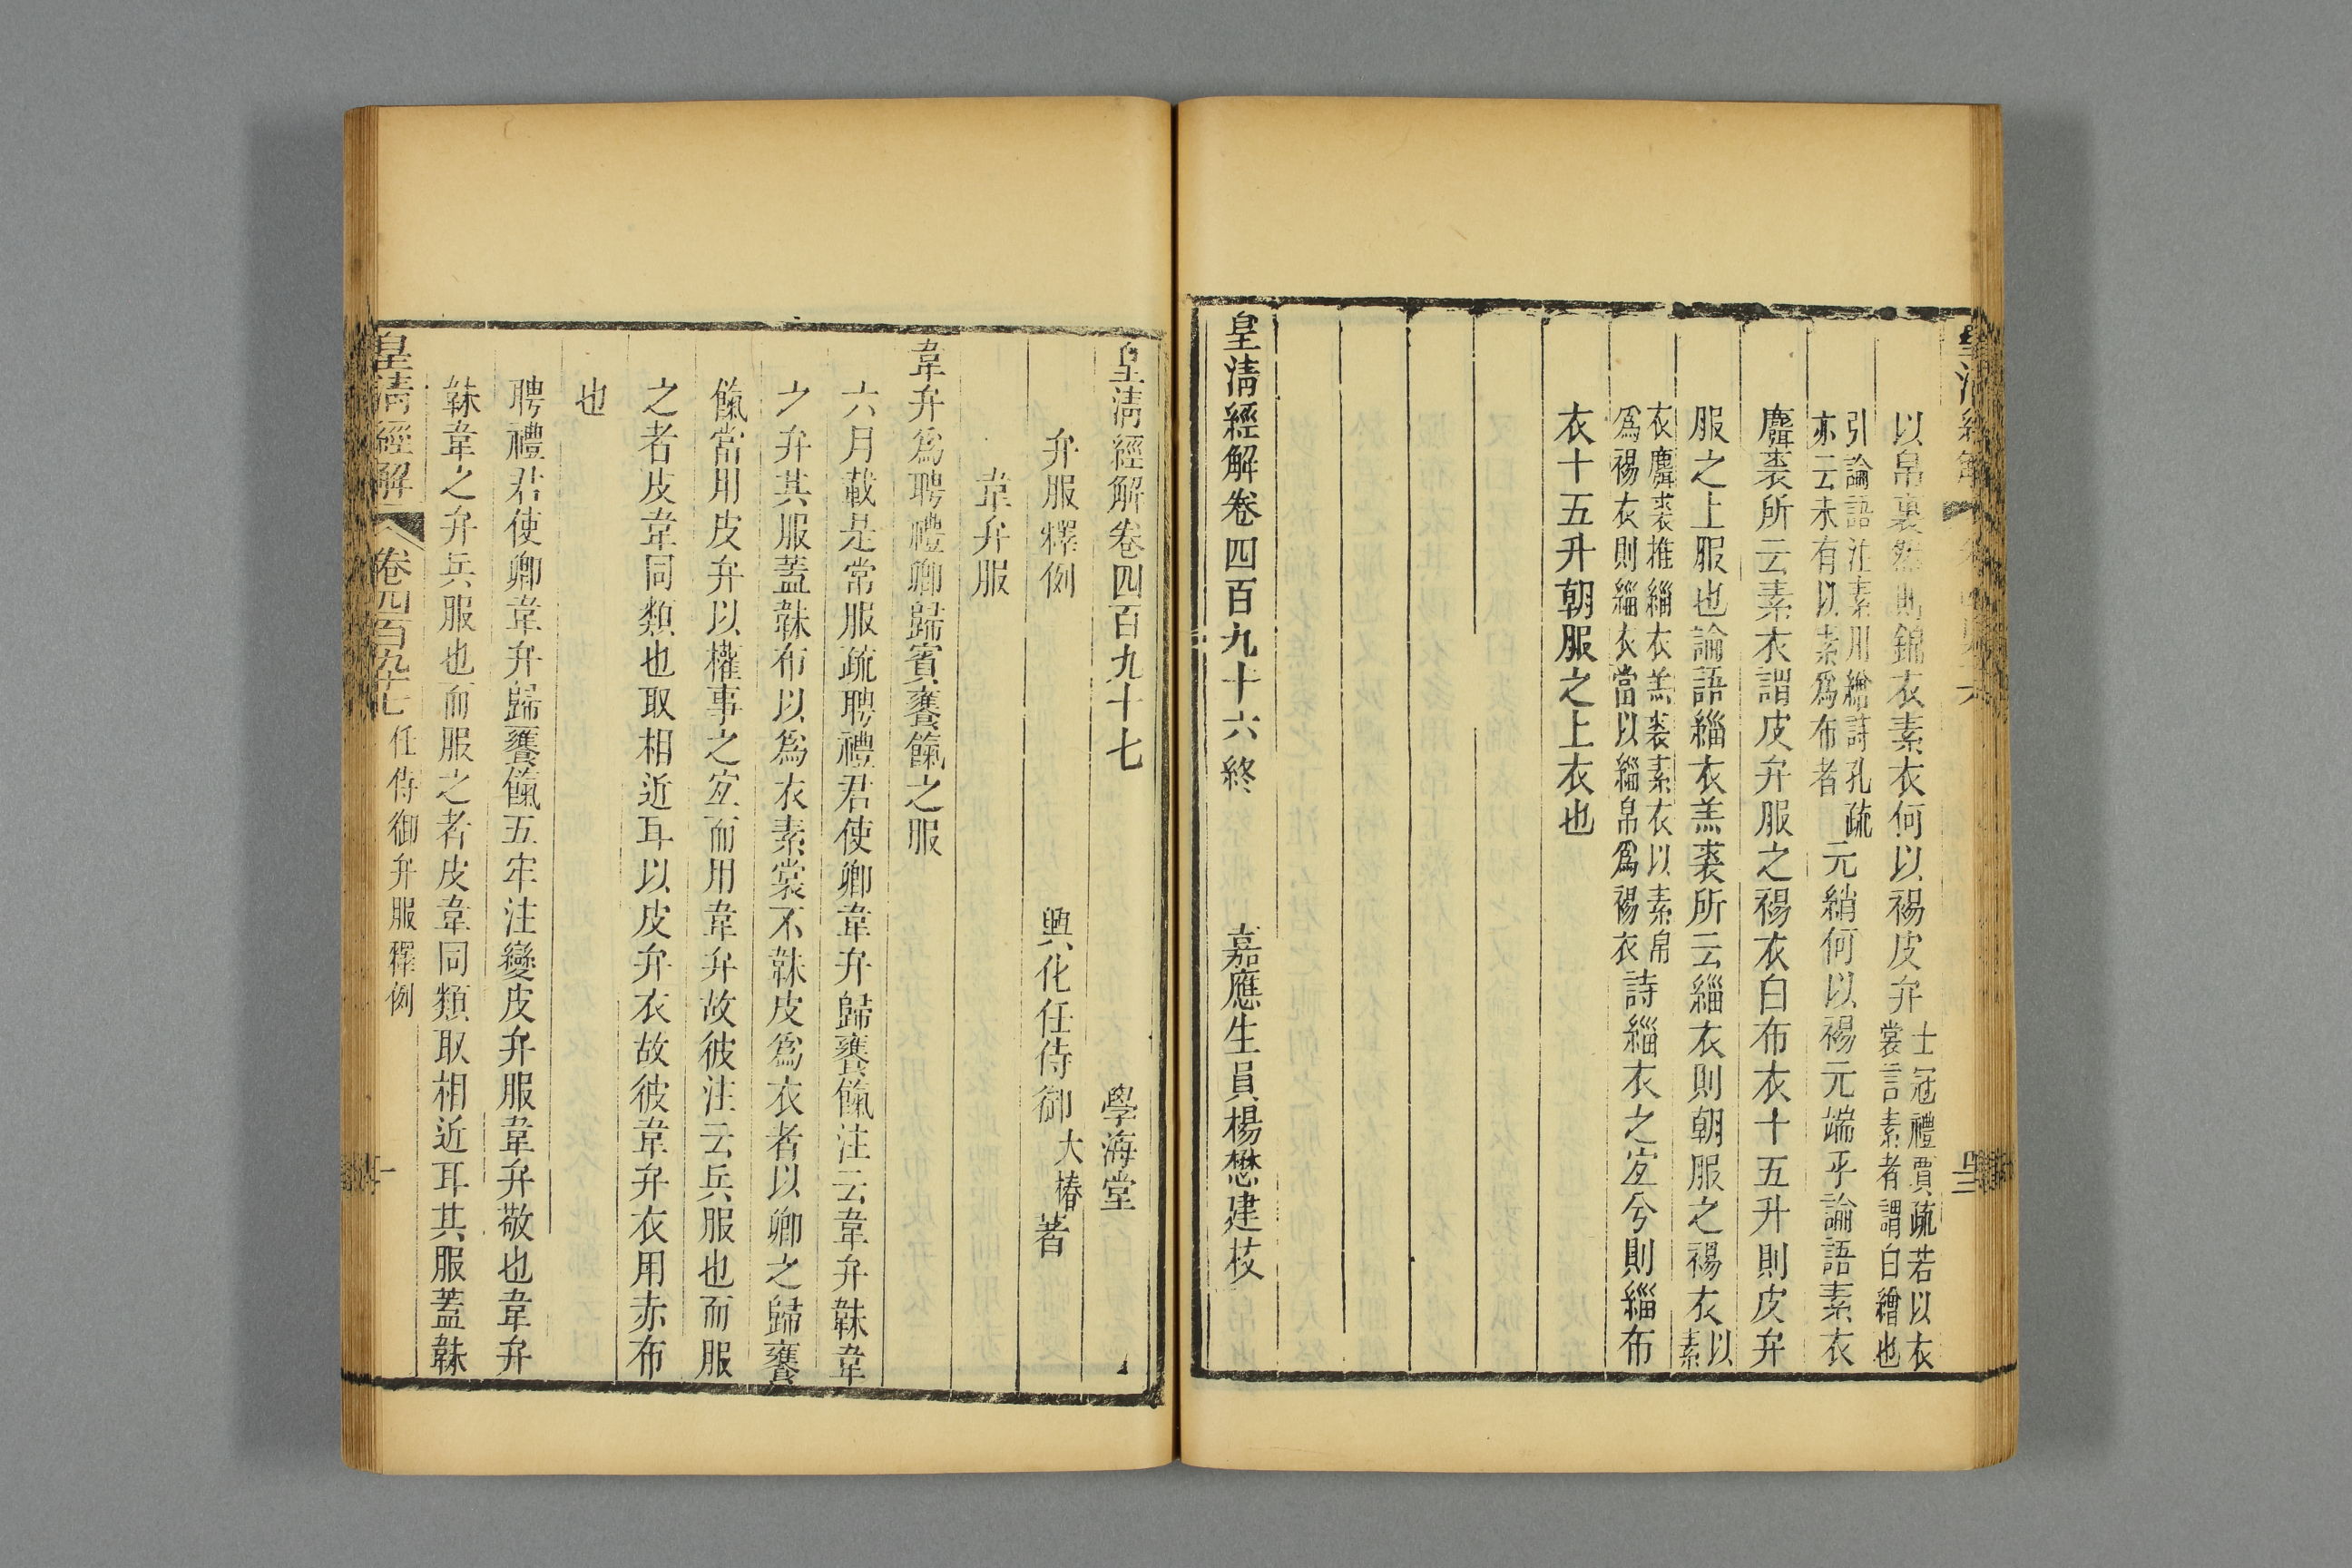 以帛裏然則錦衣素衣何以裼皮弁士冠禮賈疏若以衣裳言素者謂白繒也
引論語注素用繒詩孔疏亦云未有以素爲布者元綃何以裼元端乎論語素衣
麑裘所云素衣謂皮弁服之裼衣白布衣十五升則皮弁
服之上服也論語緇衣羔裘所云緇衣則朝服之裼衣以素
衣麑裘推緇衣羔裘素衣以素帛爲裼衣則緇衣當以緇帛爲裼衣詩緇衣之宐兮則緇布
衣十五升朝服之上衣也
皇清經解卷四百九十六終 嘉應生員楊懋建校
皇清經解卷四百九十七 學海堂
弁服釋例 興化任侍御大椿著
韋弁服
韋弁爲聘禮卿歸賓饔餼之服
六月載是常服疏聘禮君使卿韋弁歸饔餼注云韋弁韎韋
之弁其服蓋韎布以爲衣素裳不韎皮爲衣者以卿之歸饔
餼當用皮弁以權事之宐而用韋弁故彼注云兵服也而服
之者皮韋同類也取相近耳以皮弁衣故彼韋弁衣用赤布
也
聘禮君使卿韋弁歸饔餼五牢注變皮弁服韋弁敬也韋弁
韎韋之弁兵服也而服之者皮韋同類取相近耳其服蓋韎
皇清經解 卷四百九十七 任侍御弁服釋例 一